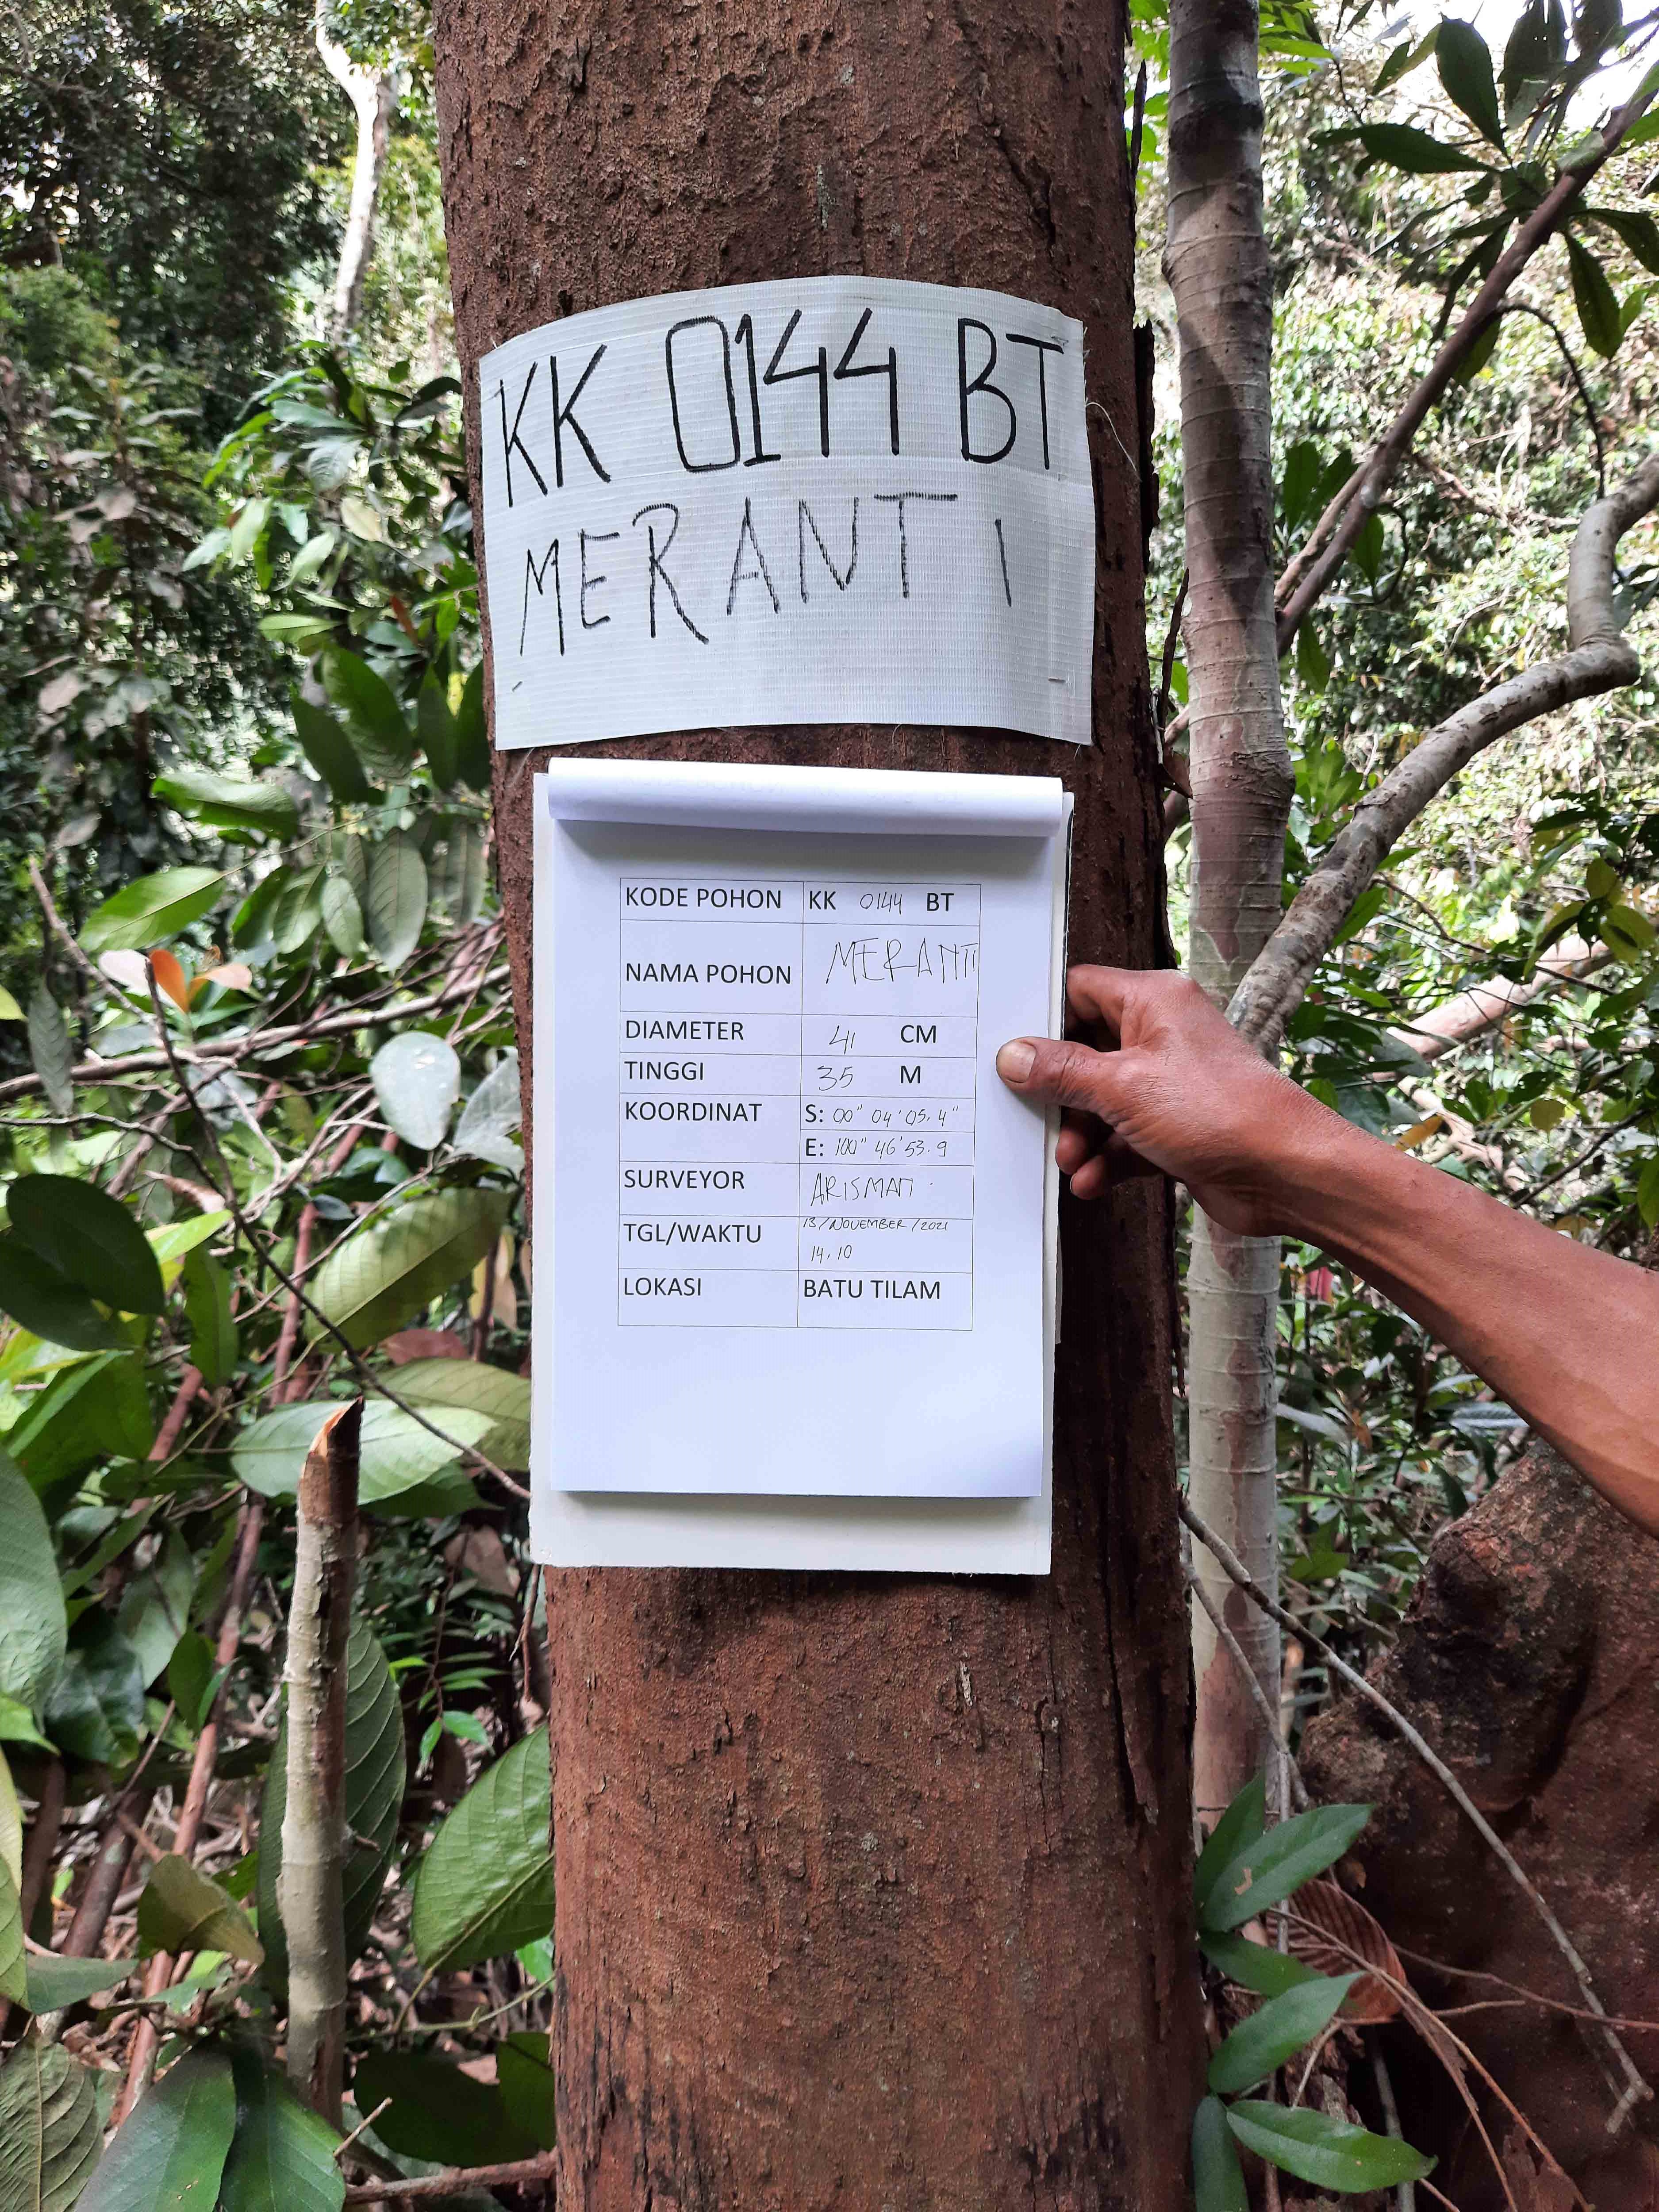 KK 0144 BT
MERANTI
KODE POHON KK 0144 BT
NAMA POHON MERANTI
DIAMETER 41 CM
TINGGI 35 M
KOORDINAT S: 00" 04' 05.4"
E: 100" 46' 53.9
SURVEYOR ARISMAN
TGL/WAKTU 13/NOVEMBER/2021
14.10
LOKASI BATU TILAM